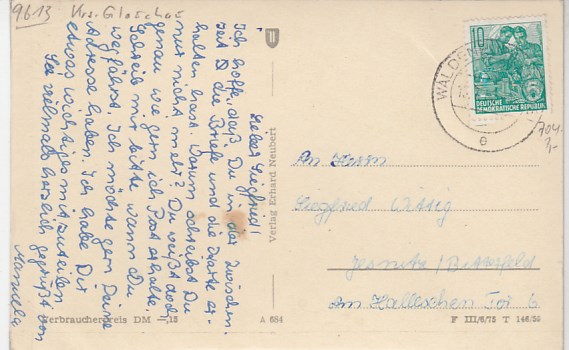 9613 Krs. Glauchau
Lieber Siegfried!
Ich hoffe, daß Du in der zwischen
zeit die Briefe und die Karte er-
halten hast. Warum schreibst Du
mir nicht mehr? Du weißt doch
genau wie gern ich Post erhalte.
Schreib mir bitte wann Du
wegfährst. Ich möchte gern Deine
Adresse haben. Ich habe Dir
etwas wichtiges mitzuteilen.
Sei vielmals herzlich gegrüßt von
Manuela
Verlag Erhard Neubert
WALDEN
e
10
DEUTSCHE
DEMOKRATISCHE REPUBLIK
An Herrn
Siegfried Wittig
Jessnitz/Bitterfeld
Am Halleschen Tor 6
Verbraucherpreis DM —,15
A 684
F III/6/75 T 146/59